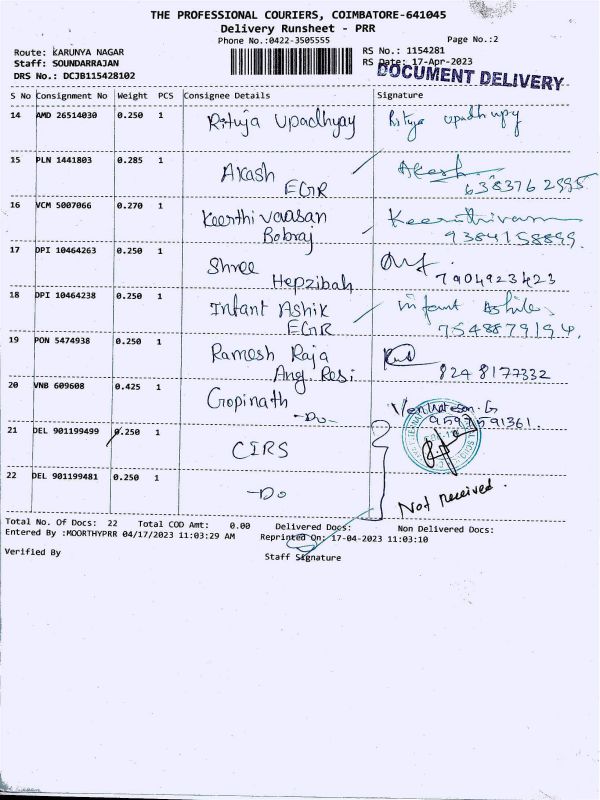 THE PROFESSIONAL COURIERS, COIMBATORE-641045
Delivery Runsheet - PRR
Phone No.:0422-3505555 Page No.:2
Route: KARUNYA NAGAR RS No.: 1154281
Staff: SOUNDARRAJAN RS Date: 17-Apr-2023
DRS No.: DCJB115428102 DOCUMENT DELIVERY
S No Consignment No Weight PCS Consignee Details Signature
14 AMD 26514030 0.250 1 Rituja Upadhyay Rituja Upadhyay
15 PLN 1441803 0.285 1 Akash Akash
EGR 6383762995
16 VCM 5007066 0.270 1 Keerthivaasan Keerthivasan
Bobraj 9384158899
17 DPI 10464263 0.250 1 Shree
Hepzibah 7904923423
18 DPI 10464238 0.250 1 Infant Ashik infant Ashik
EGR 7548879194
19 PON 5474938 0.250 1 Ramesh Raja
Ang. Resi 824 8177332
20 VNB 609608 0.425 1 Gopinath Venkatesan. G
-Do- 9597591361.
21 DEL 901199499 0.250 1 CIRS
22 DEL 901199481 0.250 1 -Do Not received.
Total No. Of Docs: 22 Total COD Amt: 0.00 Delivered Docs: Non Delivered Docs:
Entered By :MOORTHYPRR 04/17/2023 11:03:29 AM Reprinted On: 17-04-2023 11:03:10
Verified By Staff Signature